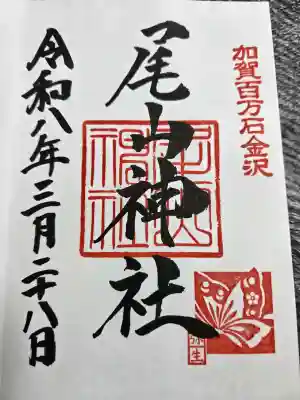 加賀百万石金沢
尾山神社
令和八年三月二十八日
弥生